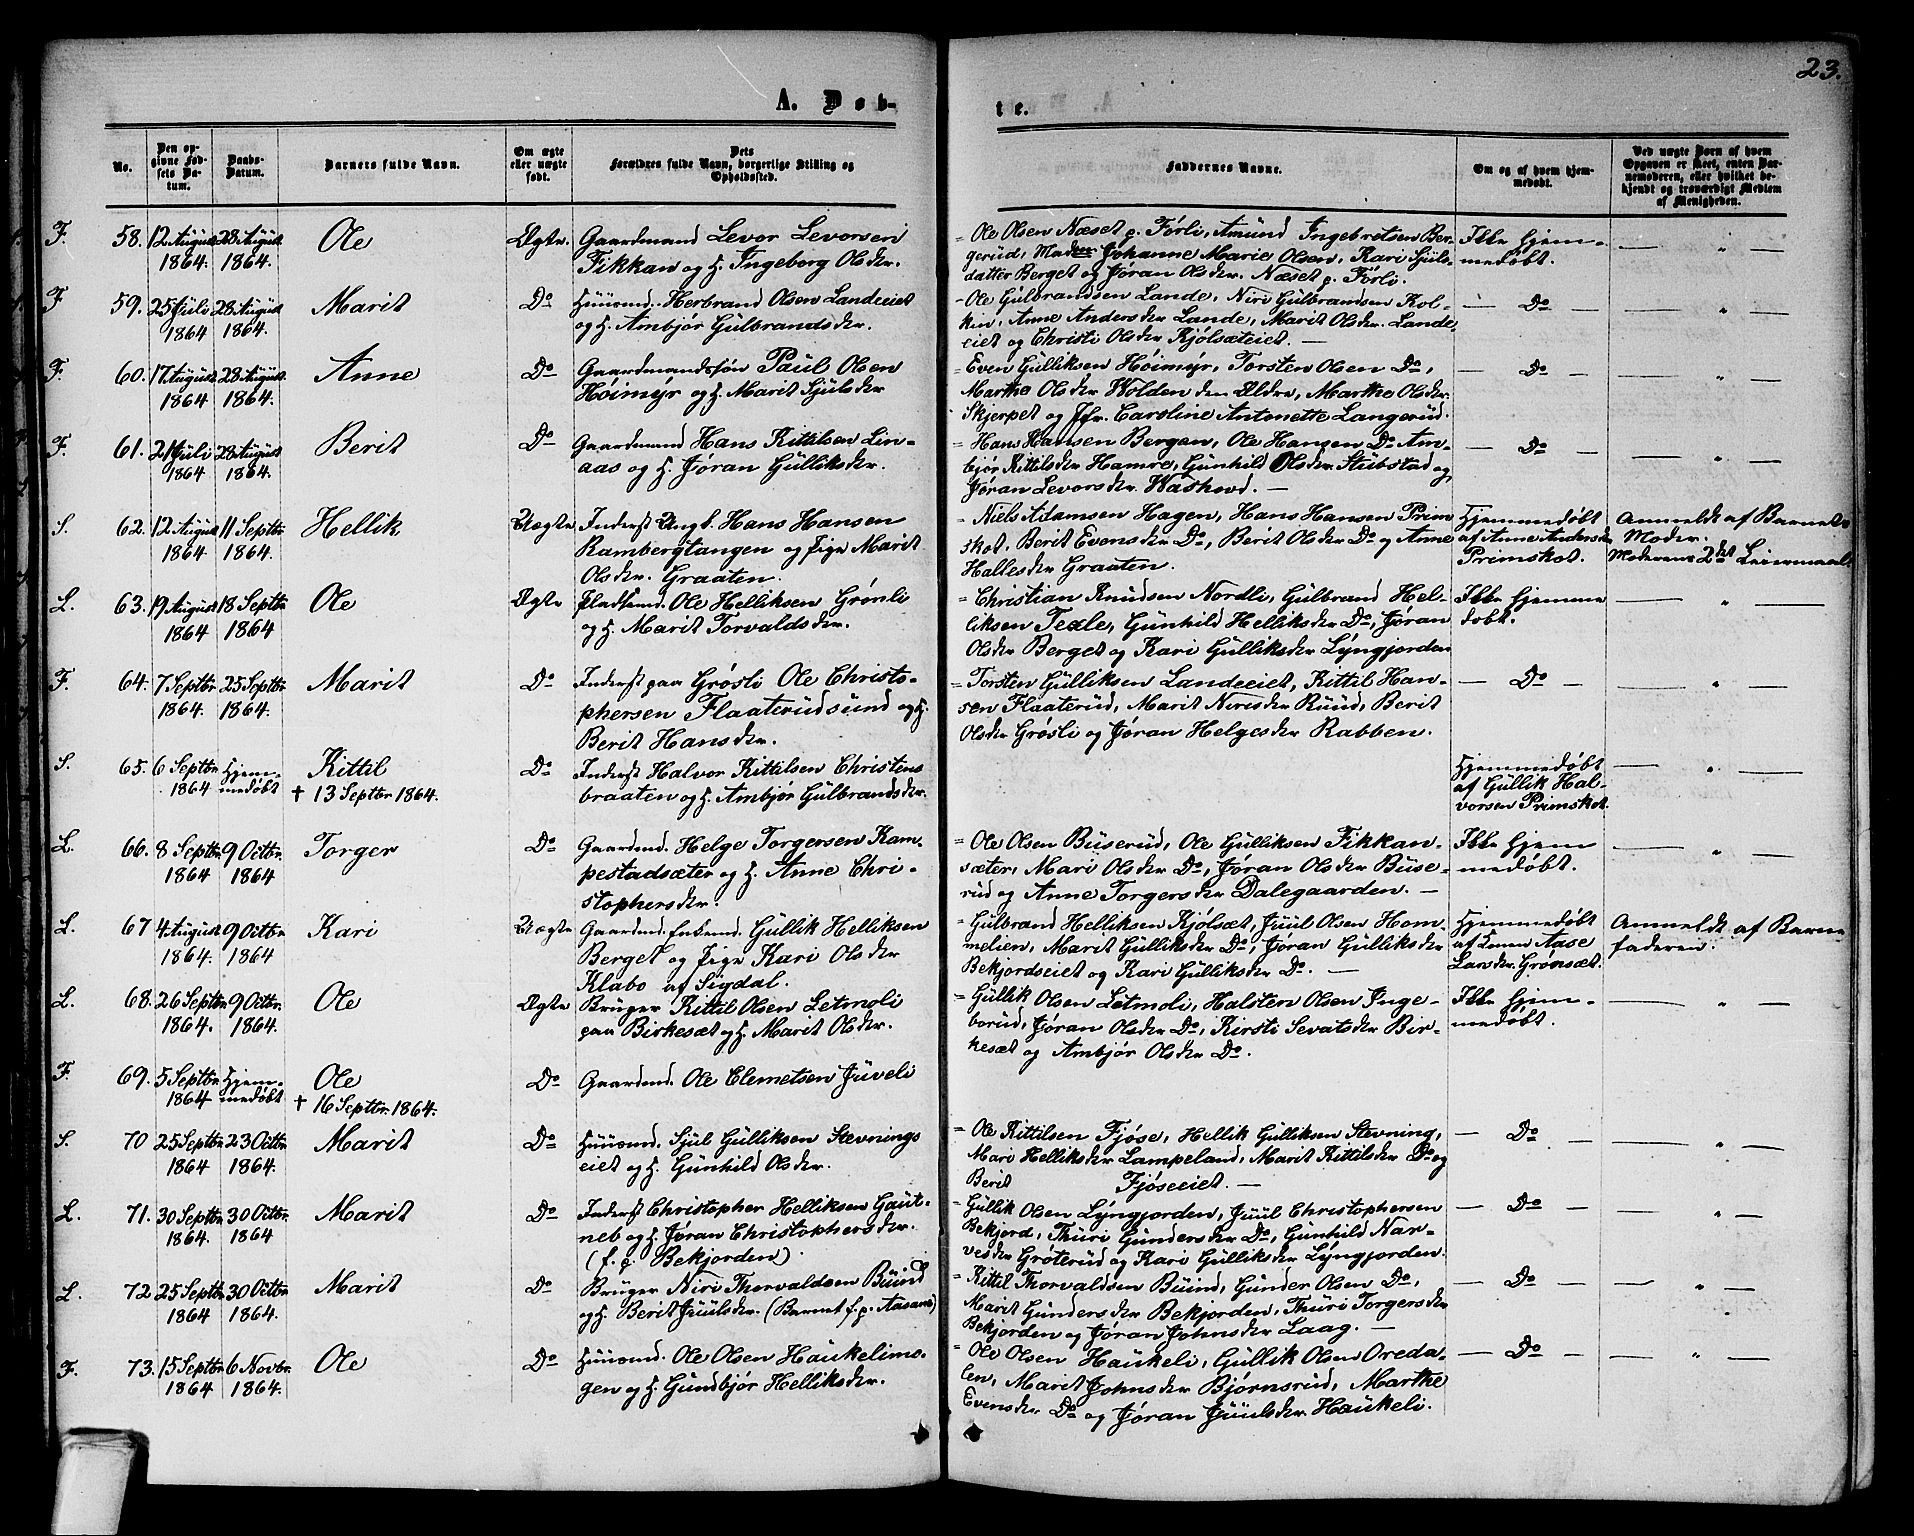 23.
A. Døb-
te.
No.
Den op-
givne Fød-
sels Da-
tum.
Daabs-
Datum.
Barnets fulde Navn.
Om ægte
eller uægte
født.
Dets
Forældres fulde Navn, borgerlige Stilling og
Opholdssted.
Faddernes Navne.
Om og af hvem hjem-
medøbt.
Ved uægte Børn af hvem
Opgaven er skeet, enten Bar-
nemoderen, eller hvilket be-
kjendt og troværdigt Medlem
af Menigheden.
F. 58. 12 August 1864. 28 August 1864. Ole Ægte. Gaardmand Levor Levorsen
Fikkan og H. Ingeborg Olsdr.
= Ole Olsen Næset p. Förli, Amund Ingebretsen Ber-
gerud, Mad. Johanne Marie Olsen, Kari Sjuls-
datter Berget og Jøran Olsdr. Næset p. Förli.
Ikke hjem-
medøbt. — „ —
F 59. 25 Juli 1864 28 August 1864. Marit Do Huusmd. Herbrand Olsen Landeeiet
og H. Ambjør Gulbrandsdr.
= Ole Gulbrandsen Lande, Niri Gulbrandsen Kol-
kin, Anne Andersdr Lande, Marit Olsdr. Lande-
eiet og Christi Olsdr Kjølsæteiet. —
— Do — — „ —
F. 60. 17 August 1864 28 August 1864. Anne Do Gaardmandssøn Paul Olsen
Höimyr og H. Marit Sjulsdr
= Even Gulliksen Höimyr, Torsten Olsen Do,
Marthe Olsdr Wolden den Ældre, Marthe Olsdr.
Skjerpet og Jfr. Caroline Antonette Langerud.
— Do — — „ —
F. 61. 21 Juli 1864 28 August 1864. Berit Do Gaardmand Hans Kittilsen Lin-
aas og H. Jøran Gulliksdr.
= Hans Hansen Bergan, Ole Hansen Do Am-
björ Kittilsdr Hamre, Gunhild Olsdr Stubstad og
Jøran Levorsdr. Washovd. —
— Do — — „ —
S. 62. 12 August 1864 11 Septbr 1864. Hellik Uægte Inderst Ungk. Hans Hansen
Rambergtangen og Pige Marit
Olsdr. Graaten.
= Niels Adamsen Hagen, Hans Hansen Prim
skot, Berit Evensdr Do, Berit Olsdr Do og Anne
Hallesdr Graaten.
Hjemmedøbt
af Anne Andersdr
Primskot.
Anmeldt af Barnets
Moder.
Moderens 2det Leiermaal
L. 63. 19 August 1864 18 Septbr 1864 Ole Ægte Pladsmd. Ole Helliksen Grønli
og H. Marit Torvaldsdr.
= Christian Knudsen Nordli, Gulbrand Hel-
liksen Texle, Gunhild Helliksdr Do, Jøran
Olsdr Berget og Kari Gulliksdr Lyngjorden
Ikke hjemme
døbt. — „ —
F. 64. 7 Septbr 1864. 25 Septbr 1864. Marit Do Inderst paa Grøsli Ole Christo-
phersen Flaaterudsund og H.
Berit Hansdr.
= Torsten Gulliksen Landeeiet, Kittil Han-
sen Flaaterud, Marit Nirisdr Ruud, Berit
Olsdr Grøsli og Jøran Helgesdr Rabben.
— Do — — „ —
S. 65. 6 Septbr 1864 Hjem-
medøbt Kittil
† 13 Septbr 1864. Do Inderst Halvor Kittilsen Christens
braaten og H. Ambjør Gulbrandsdr.
Hjemmedøbt
af Gullik Hal-
vorsen Primskot. — „ —
L. 66. 8 Septbr 1864 9 Octbr. 1864 Torger Do Gaardmd. Helge Torgersen Kam-
pestadsæter og H. Anne Chri-
stophersdr.
= Ole Olsen Buserud, Ole Gulliksen Fikkan-
sæter, Mari Olsdr Do, Jøran Olsdr Buse-
rud og Anne Torgersdr Dalegaarden. —
Ikke hjem
medøbt. — „ —
L. 67 4 August 1864. 9 Octbr 1864 Kari Uægte Gaardmd. Enkemd. Gullik Helliksen
Berget og Pige Kari Olsdr
Klabo af Sigdal.
= Gulbrand Helliksen Kjölsæt, Juul Olsen Hom-
melien, Marit Gulliksdr Do, Jøran Gulliksdr
Bekjordseiet og Kari Gulliksdr Do. —
Hjemmedøbt
af Aase
Larsdr. Grønsæt.
Anmeldt af Barne
faderen
L. 68. 26 Septbr 1864. 9 Octbr. 1864. Ole Ægte Bruger Kittil Olsen Letmoli
paa Birkesæt og H. Marit Olsdr.
= Gullik Olsen Letmoli, Halsten Olsen Inge-
borud, Jøran Olsdr Do, Kirsti Sevatsdr Bir-
kesæt og Ambjør Olsdr Do.
Ikke hjem-
medøbt. — „ —
F. 69. 5 Septbr 1864 Hjem-
medøbt Ole
† 16 Septbr. 1864. Do Gaardmd. Ole Clemetsen Juveli
S. 70 25 Septbr 1864 23 Octbr 1864. Marit Do Huusmd. Sjul Gulliksen Stevnings
eiet og H. Gunhild Olsdr.
= Ole Kittilsen Fjøse, Hellik Gulliksen Stevning,
Mari Helliksdr Lampeland, Marit Kittilsdr Do og
Berit Fjøseeiet. —
— Do — — „ —
L. 71. 30 Septbr 1864. 30 Octbr. 1864 Marit Do Inderst Christopher Helliksen Gaut-
neb og H. Jøran Christophersdr.
(f. p. Bekjorden).
= Gullik Olsen Lyngjorden, Juul Christophersen
Bekjord, Thuri Gundersdr Do, Gunhild Nar-
vesdr Grøterud og Kari Gulliksdr Lyngjorden.
— Do — — „ —
L. 72 25 Septbr 1864 30 Octbr 1864. Marit Do Bruger Niri Thorvaldsen Buind
og H. Berit Juulsdr. (Barnet f. p. Aasane)
= Kittil Thorvaldsen Buind, Gunder Olsen Do,
Marit Gundersdr Bekjorden, Thuri Torgersdr
Bekjorden og Jøran Johnsdr Laag. —
— Do — — „ —
F. 73. 15 Septbr 1864 6 Novbr. 1864. Ole Do Huusmd. Ole Olsen Haukelims-
gen og H. Gundbjør Helliksdr.
= Ole Olsen Haukeli, Gullik Olsen Oreda-
len, Marit Johnsdr Bjørnsrud, Marthe
Evensdr Do og Jøran Juulsdr. Haukeli.
— Do — — „ —